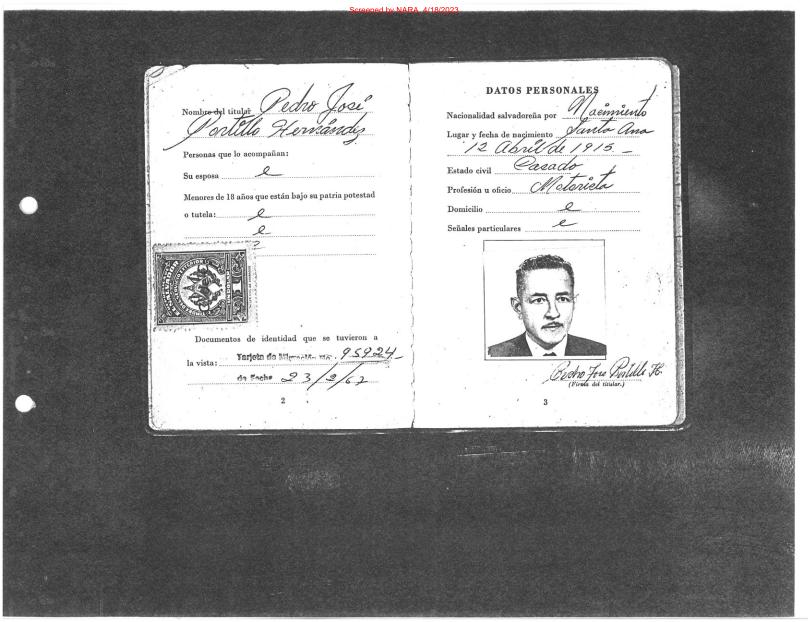 Screened by NARA, 4/18/2023
Nombre del titular Pedro José
Portillo Hernández
Personas que lo acompañan:
Su esposa
Menores de 18 años que están bajo su patria potestad
o tutela:
Documentos de identidad que se tuvieron a
la vista: Tarjeta de No. 95924
de fecha 23/2/62
2
DATOS PERSONALES
Nacionalidad salvadoreña por Nacimiento
Lugar y fecha de nacimiento Santa Ana
12 Abril de 1915
Estado civil Casado
Profesión u oficio Motorista
Domicilio
Señales particulares
Pedro Jose Portillo H.
(Firma del titular.)
3